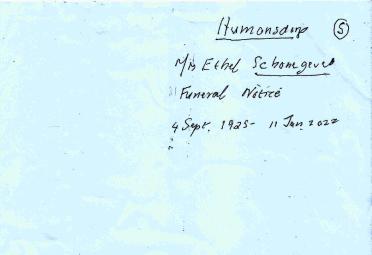 Humansdorp (S)
Mrs Ethel Schonegevel
Funeral Notice
4 Sept. 1925 - 11 Jan. 2022